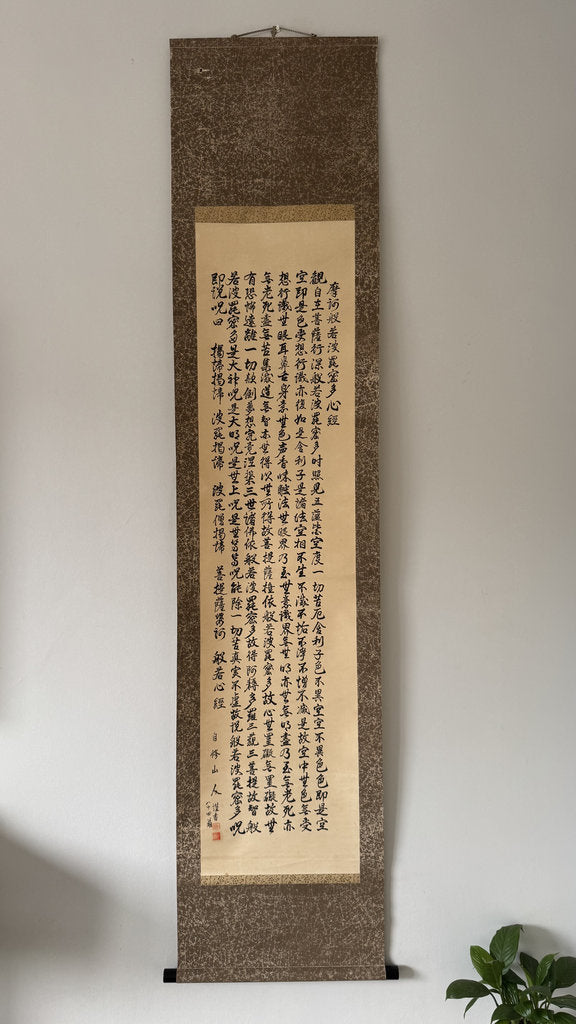 摩訶般若波羅蜜多心經
觀自在菩薩行深般若波羅蜜多时照見五蘊皆空度一切苦厄舍利子色不異空空不異色色即是空
空即是色受想行識亦復如是舍利子是諸法空相不生不滅不垢不淨不增不減是故空中無色無受
想行識無眼耳鼻舌身意無色声香味触法無眼界乃至無意識界無無明亦無無明盡乃至無老死亦
無老死盡無苦集滅道無智亦無得以無所得故菩提薩埵依般若波羅蜜多故心無罣礙無罣礙故無
有恐怖遠離一切顛倒夢想究竟涅槃三世諸佛依般若波羅蜜多故得阿耨多羅三藐三菩提故智般
若波羅蜜多是大神呪是大明呪是無上呪是無等等呪能除一切苦真実不虚故説般若波羅蜜多呪
即説呪曰 揭諦揭諦 波羅揭諦 波羅僧揭諦 菩提薩婆訶 般若心經
自修山人
謹書